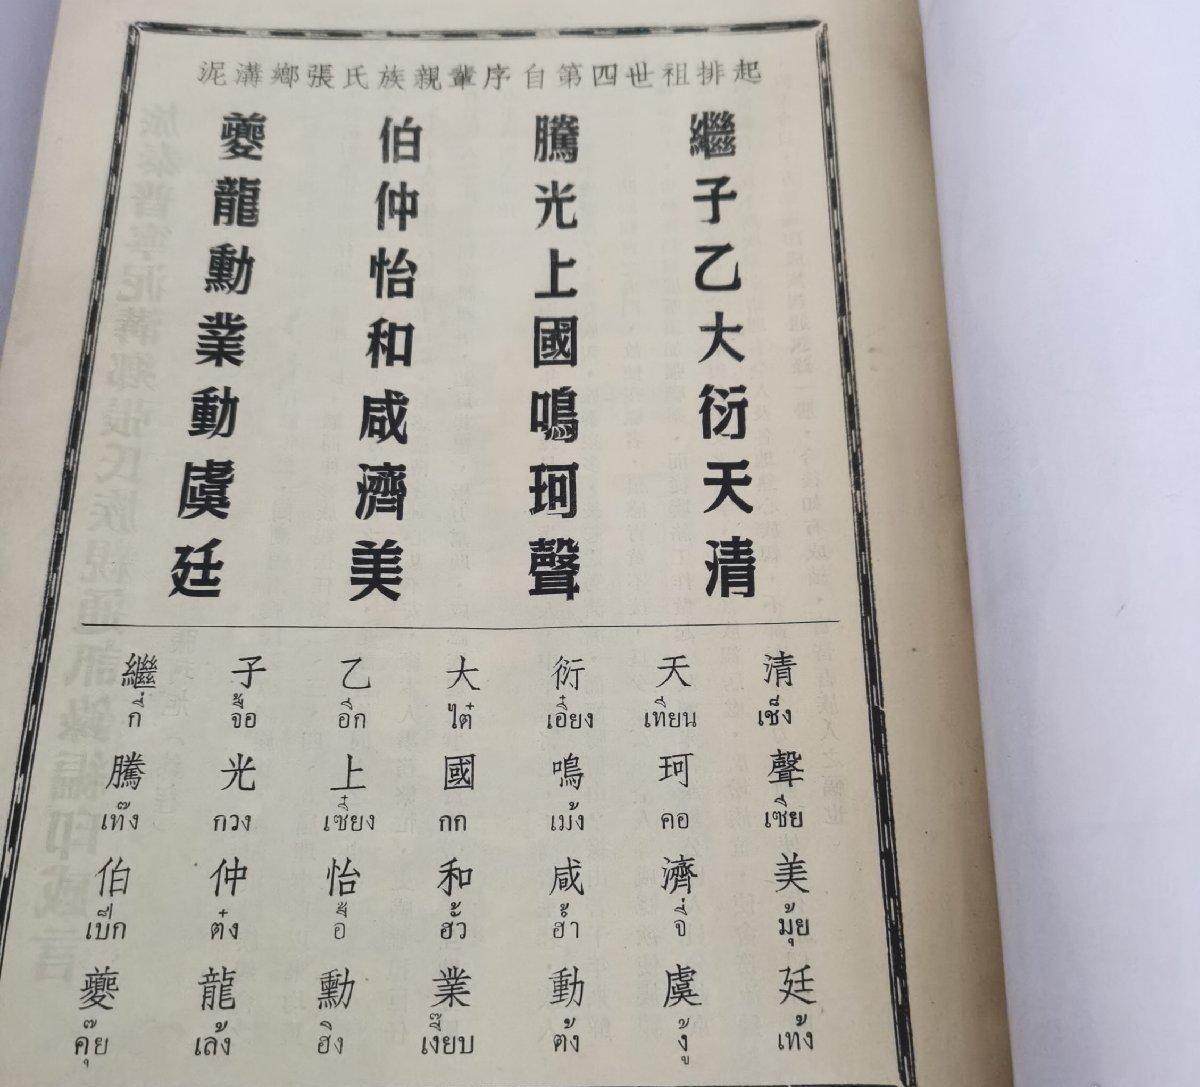 泥溝鄉張氏族親輩序自第四世祖排起
繼子乙大衍天清
騰光上國鳴珂聲
伯仲怡和咸濟美
夔龍勳業動虞廷
繼 子 乙 大 衍 天 清
กี่ จื้อ อิก ไต๋ เอี๋ยง เทียน เช็ง
騰 光 上 國 鳴 珂 聲
เท๊ง กวง เซี่ยง กก เม้ง คอ เซีย
伯 仲 怡 和 咸 濟 美
เบ๊ก ต๋ง อี๊ ฮั้ว ฮ้ำ จี่ มุ้ย
夔 龍 勳 業 動 虞 廷
คุ๊ย เล้ง ฮิง เงี๊ยบ ต้ง งู้ เท้ง